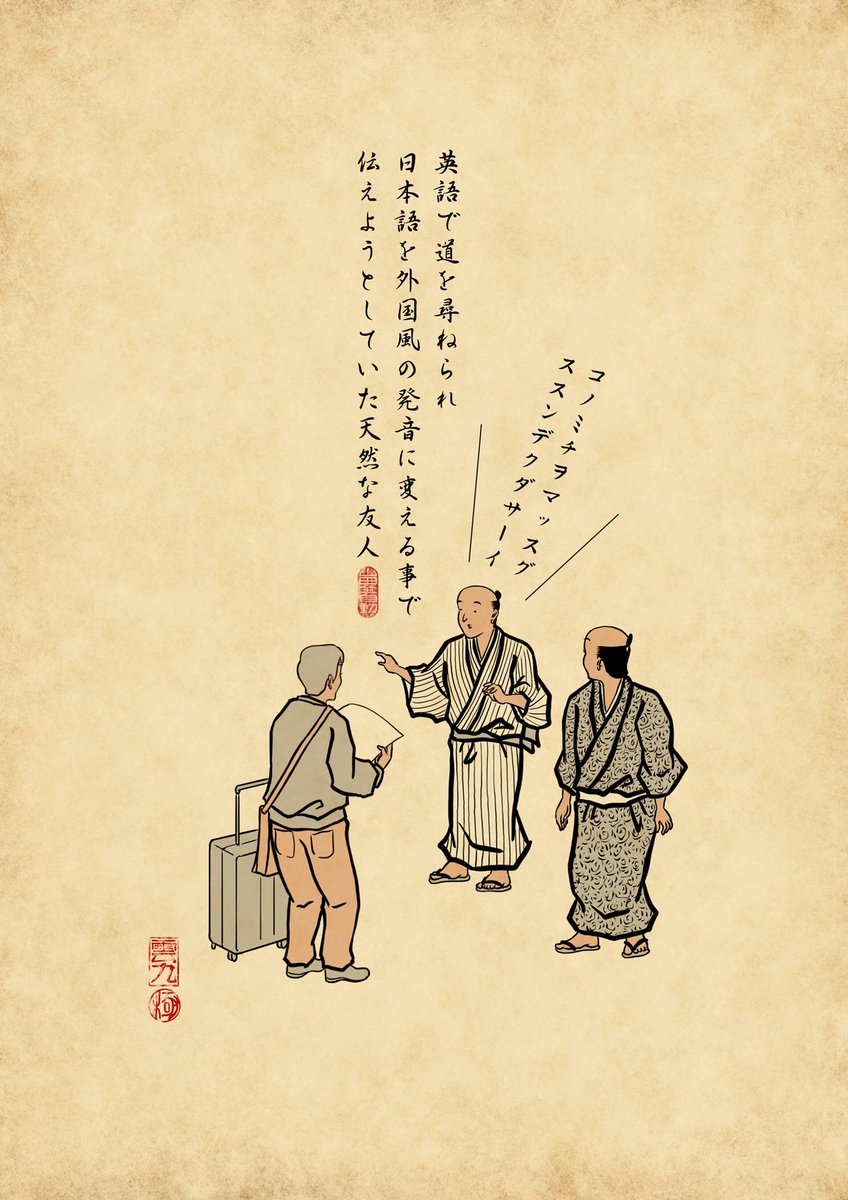 英語で道を尋ねられ
日本語を外国風の発音に変える事で
伝えようとしていた天然な友人
コノミチヲマッスグ
ススンデクダサーイ